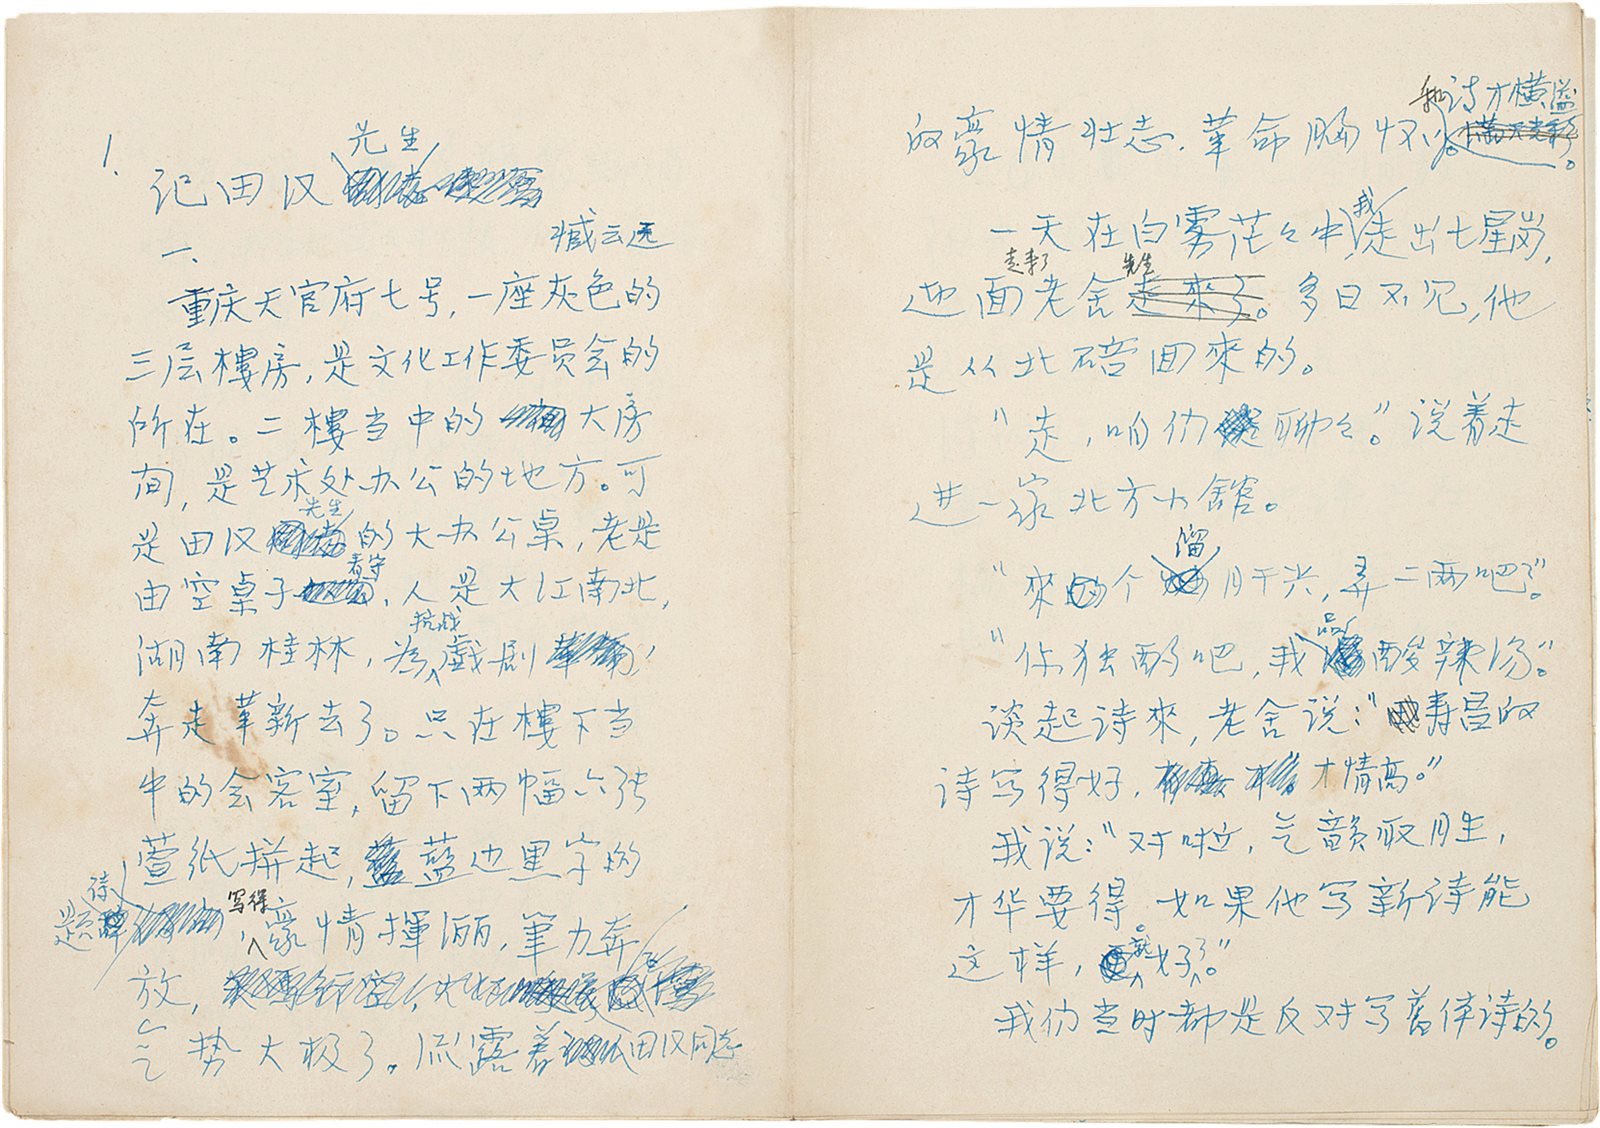 1.
先生
记田汉
臧云远
一、
重庆天官府七号，一座灰色的
三层樓房，是文化工作委员会的
所在。二樓当中的大房
间，是艺术处办公的地方。可
是田汉先生的大办公桌，老是
由空桌子看守，人是大江南北，
湖南桂林，为抗战戲剧
奔走革新去了。只在樓下当
中的会客室，留下两幅六张
萱纸拼起，蓝边黑字的
题诗，写得豪情揮洒，筆力奔
放，
气势大极了。流露着田汉同志
的豪情壮志，革命胸怀和诗才横溢。
一天在白雾茫々中，我走出七星岗，
迎面走来了老舍先生。多日不见，他
是从北碚回來的。
“走，咱们聊々。”说着走
进一家北方小馆。
“來个溜月干尖，弄二两吧？”
“你独酌吧，我品酸辣汤。”
谈起诗來，老舍说：“寿昌的
诗写得好，才情高。”
我说：“对啦，气韻取胜，
才华要得。如果他写新诗能
这样，就好了。”
我们当时都是反对写舊体诗的。